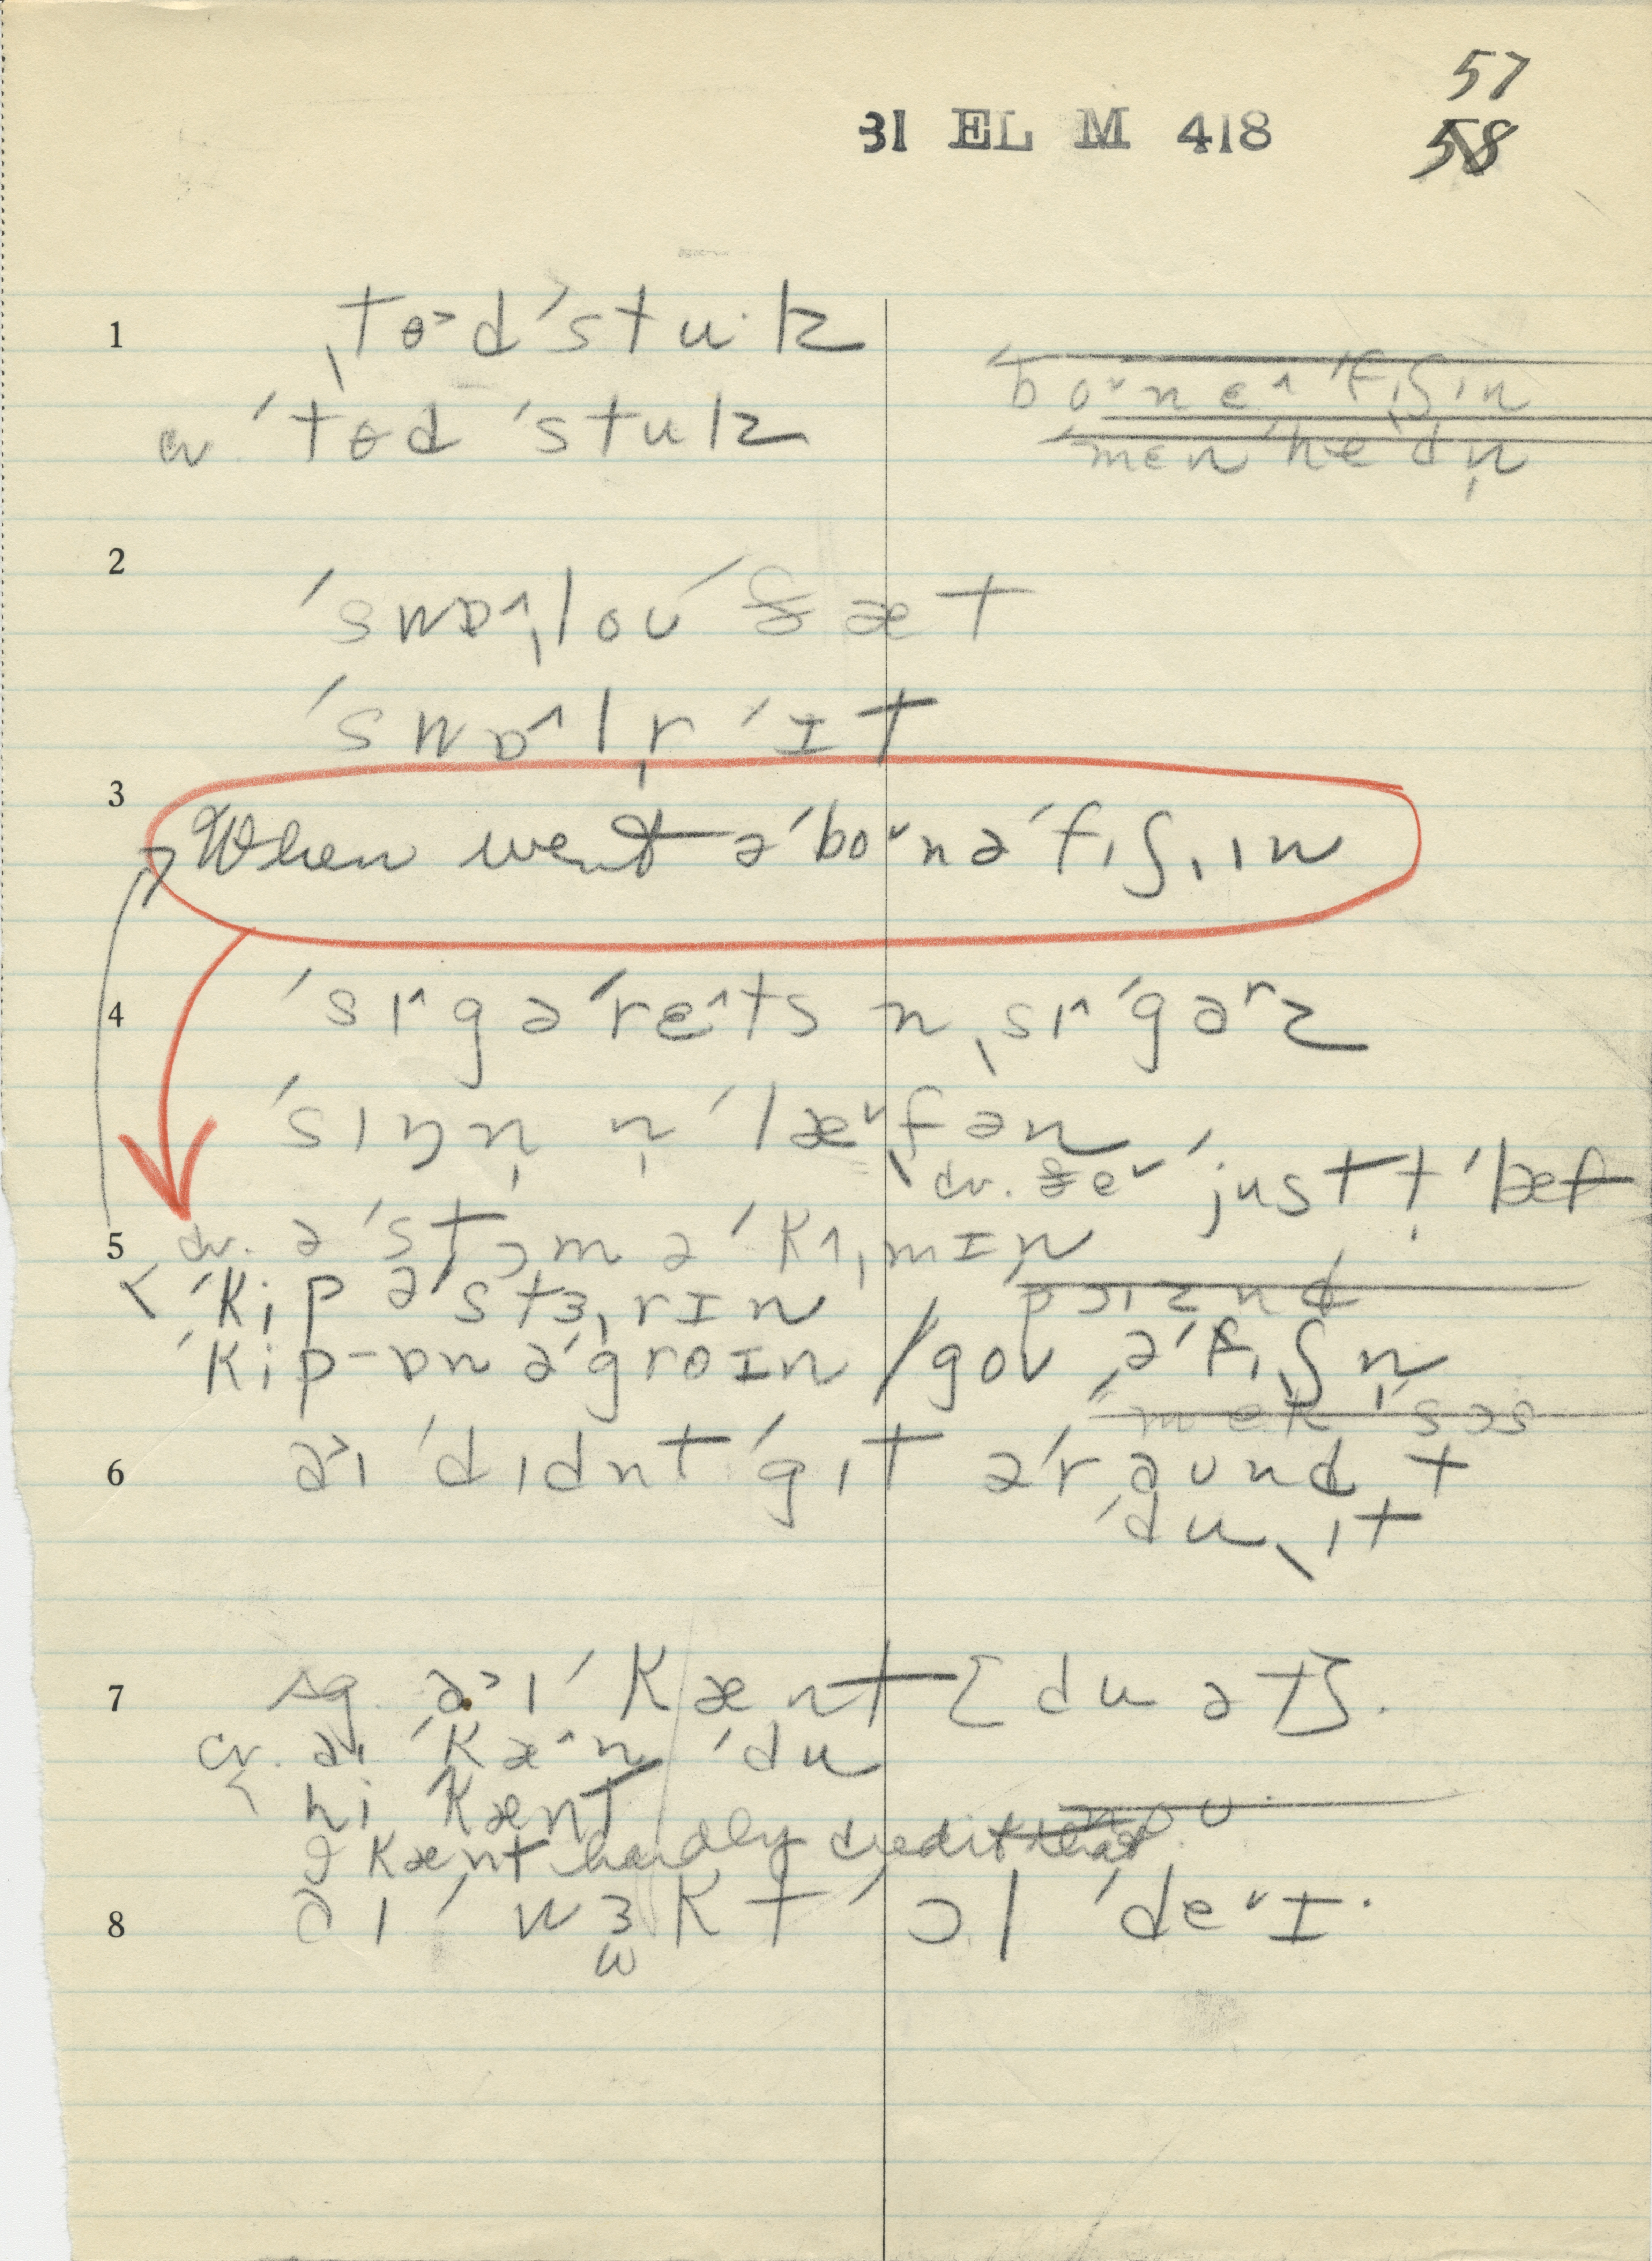 57
31 EL M 418
58
1 ˌtɵ˃d ˈstu·k
cv. ˈtɵd ˈstuk
bo˅ne˄ ˈfɪʃɪn
men ˈhedn̩
2
ˈswɒ˄ˌloʊ ˈðæt
ˈswɒ˄lr̩ ˈɪt
3
When went ə ˈbo˅nə ˈfɪʃˌɪn
4 ˈsɪ˄gəˈre˄ts n ˌsɪ˄ˈgərz
ˈsɪŋn̩ n̩ ˈlæ˅fən
cv. ðe˅ ˈjust t̩ ˈbef
5 cv. ə ˈstɔm ə ˈkʌmɪn
ˈkip əˈstɜˌrɪn
ˈkip-ɒn əˈgroɪn / goʊ ə ˈfɪʃn̩
6 ə˃ɪ ˈdɪdnt ˈgɪt əˈraʊnd t
ˈdu ˌɪt
7 sg. ə˃ɪ ˈkænt [du ət].
cv. əɪ ˈkæ˄n ˈdu
hi kænt
I kænt hardly credit that
8 əɪ ˈwɜkt ˈɔl ˈde˅ɪ·
ω